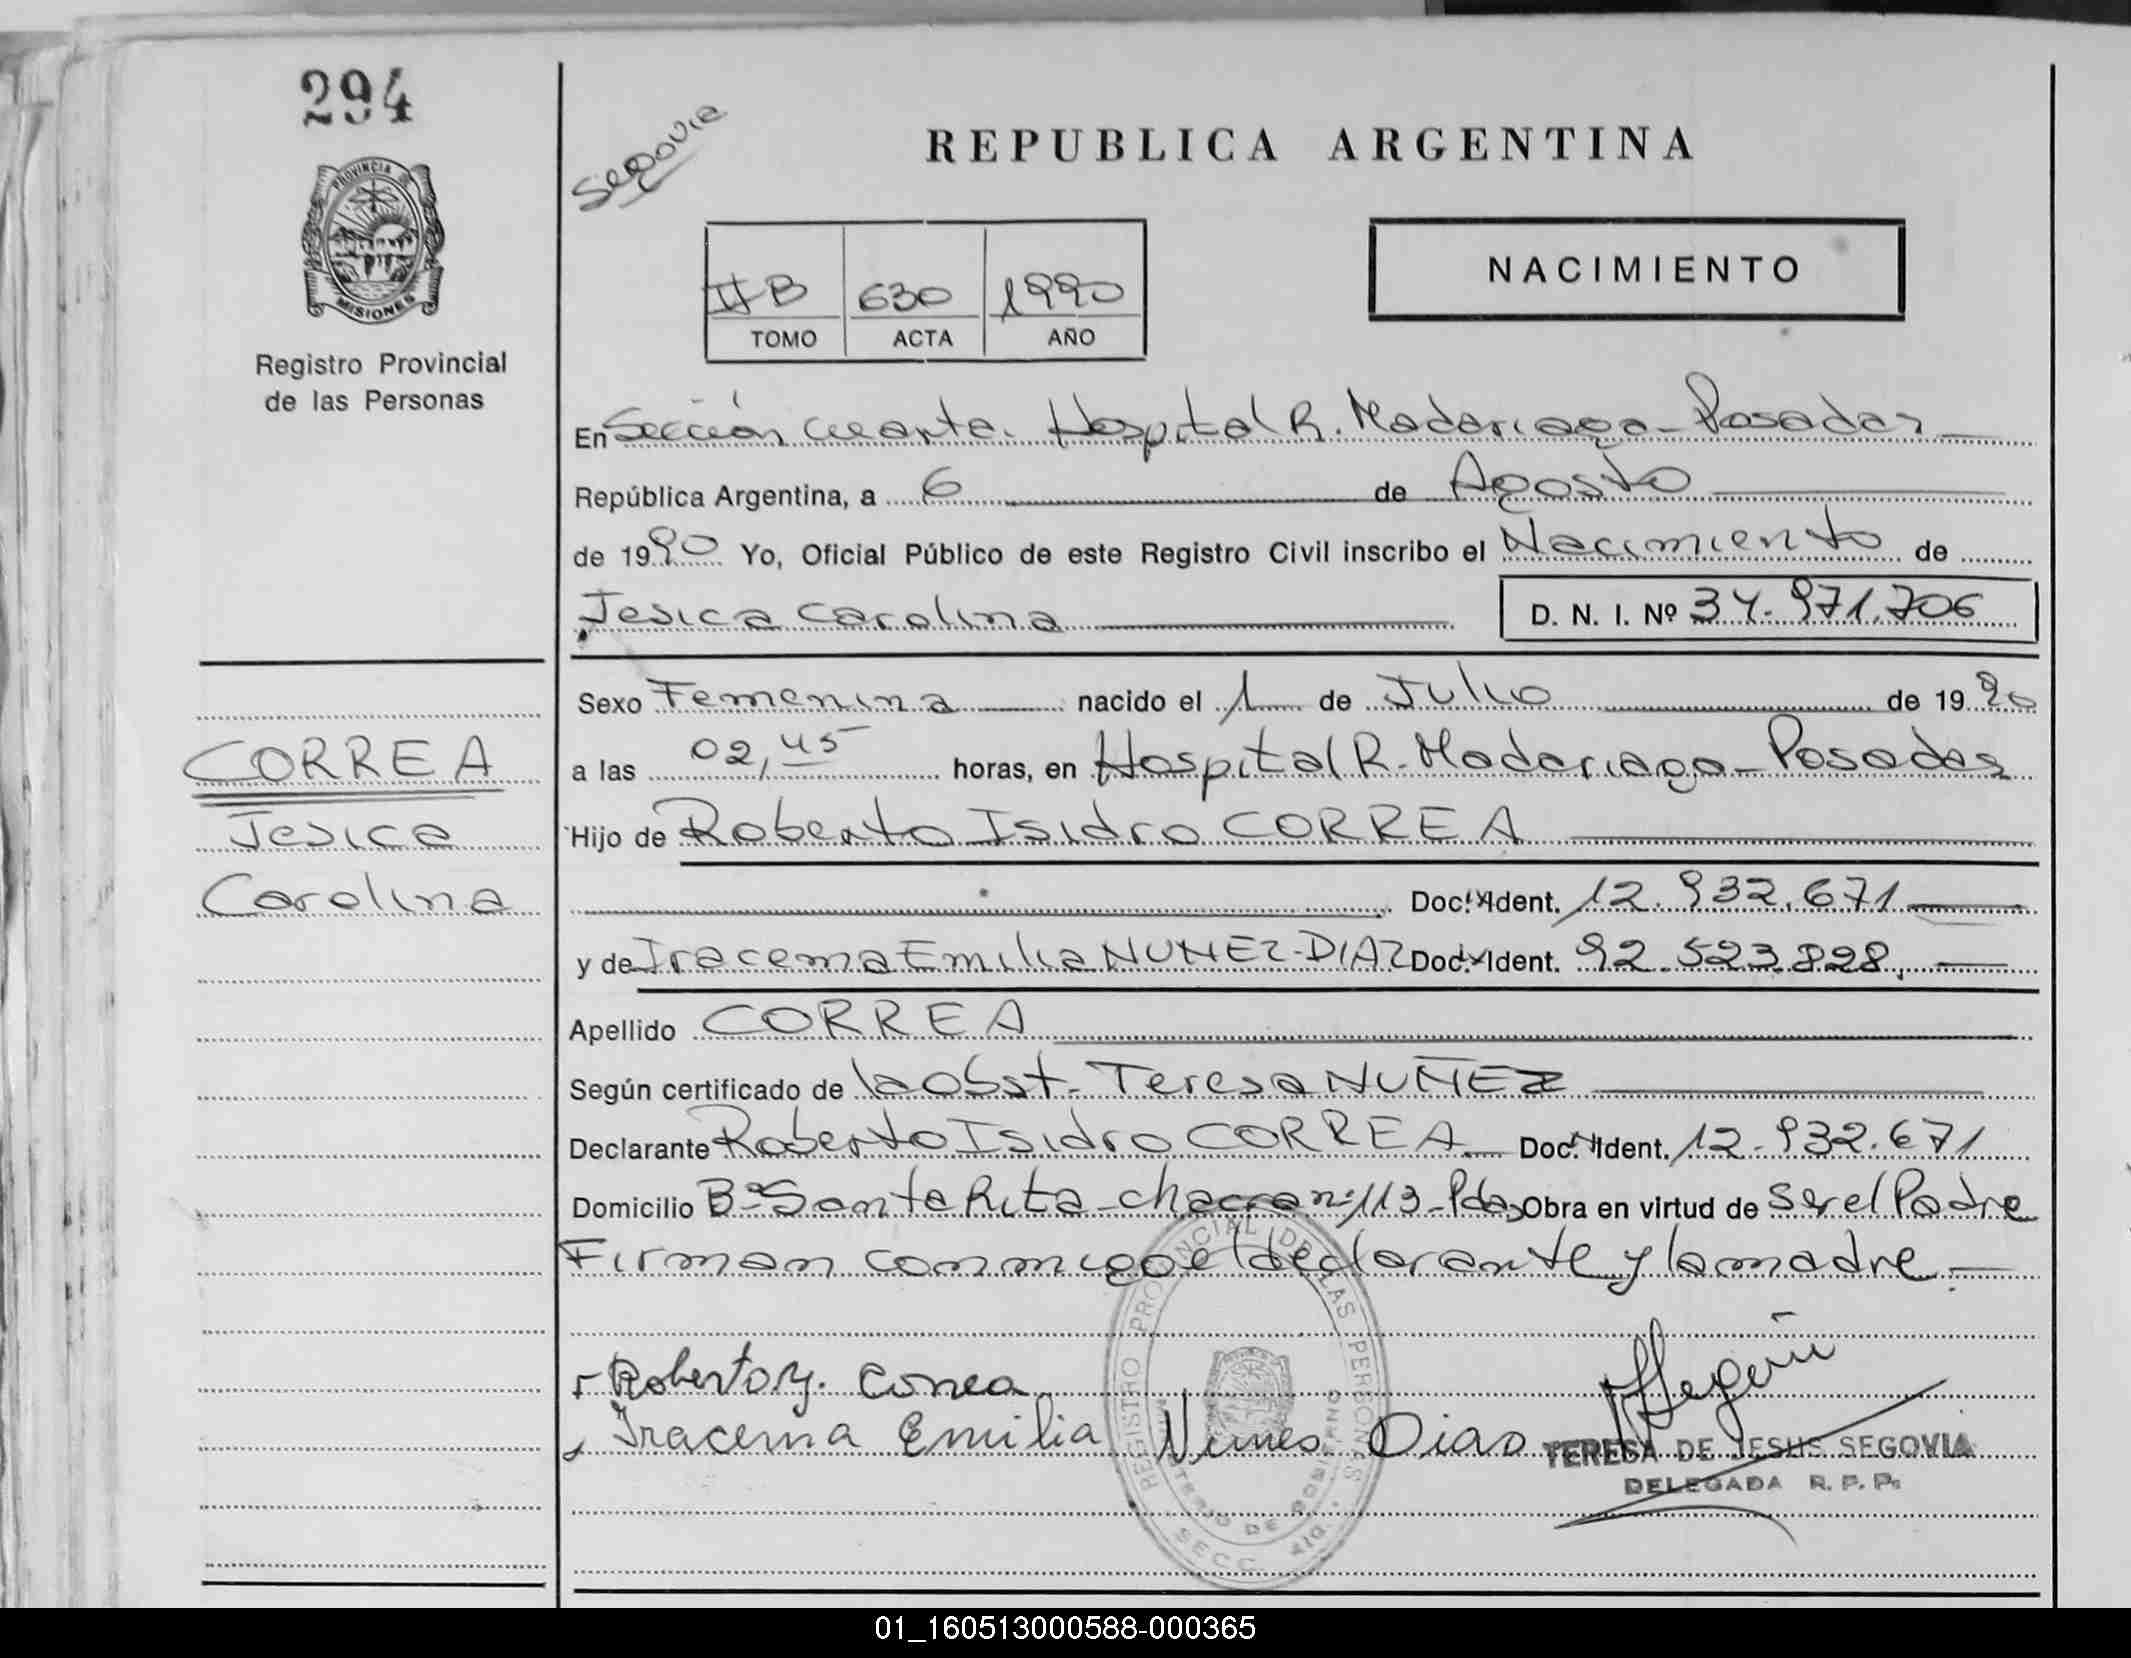 294
PROVINCIA
MISIONES
Registro Provincial
de las Personas
Segovia
REPUBLICA ARGENTINA
II B 630 1990
TOMO ACTA AÑO
NACIMIENTO
En Sección cuarta. Hospital R. Madariaga - Posadas
República Argentina, a 6 de Agosto
de 1990 Yo, Oficial Público de este Registro Civil inscribo el Nacimiento de
Jesica Carolina D. N. I. Nº 34.971.706
Sexo Femenina nacido el 1 de Julio de 1990
CORREA
a las 02,45 horas, en Hospital R. Madariaga - Posadas
Jesica
Hijo de Roberto Isidro CORREA
Carolina
Doc. Ident. 12.932.671
y de Iracema Emilia NUNEZ-DIAZ Doc. Ident. 92.523.828,
Apellido CORREA
Según certificado de la Obst. Teresa NUÑEZ
Declarante Roberto Isidro CORREA Doc. Ident. 12.932.671
Domicilio Bº Santa Rita - chacra nº 113 - Pdas Obra en virtud de ser el Padre
Firman conmigo el declarante y la madre.-
Roberto Y. Correa
Iracema Emilia Nunes Dias
TERESA DE JESUS SEGOVIA
DELEGADA R. P. P.
REGISTRO PROVINCIAL DE LAS PERSONAS
MINISTERIO DE GOBIERNO
SECC. 4ta.
01_160513000588-000365